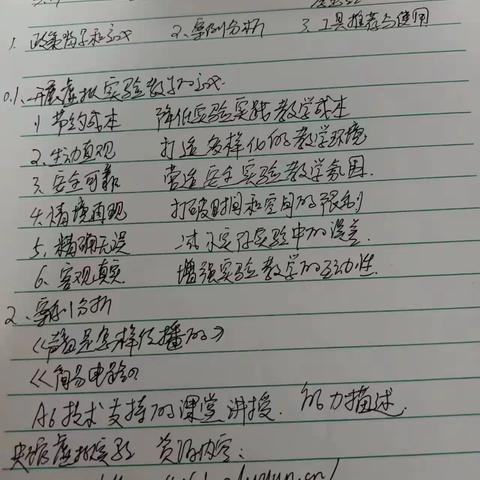 1. 政策指导和意义 2、案例分析 3. 工具推荐与使用
01. 开展虚拟实验教学的意义.
1) 节约成本 降低实验实践教学成本
2. 生动直观 打造多样化的教学环境
3. 安全可靠 营造安全实验教学氛围.
4. 情境再现 打破时间和空间的限制
5. 精确无误 减示实际实验中的误差.
6. 客观真实 增强实验教学的互动性.
2、案例分析
《声音是怎样传播的》
《简易电路》
A6技术支持的课堂讲授. 能力描述.
央馆虚拟实验 资源内容: